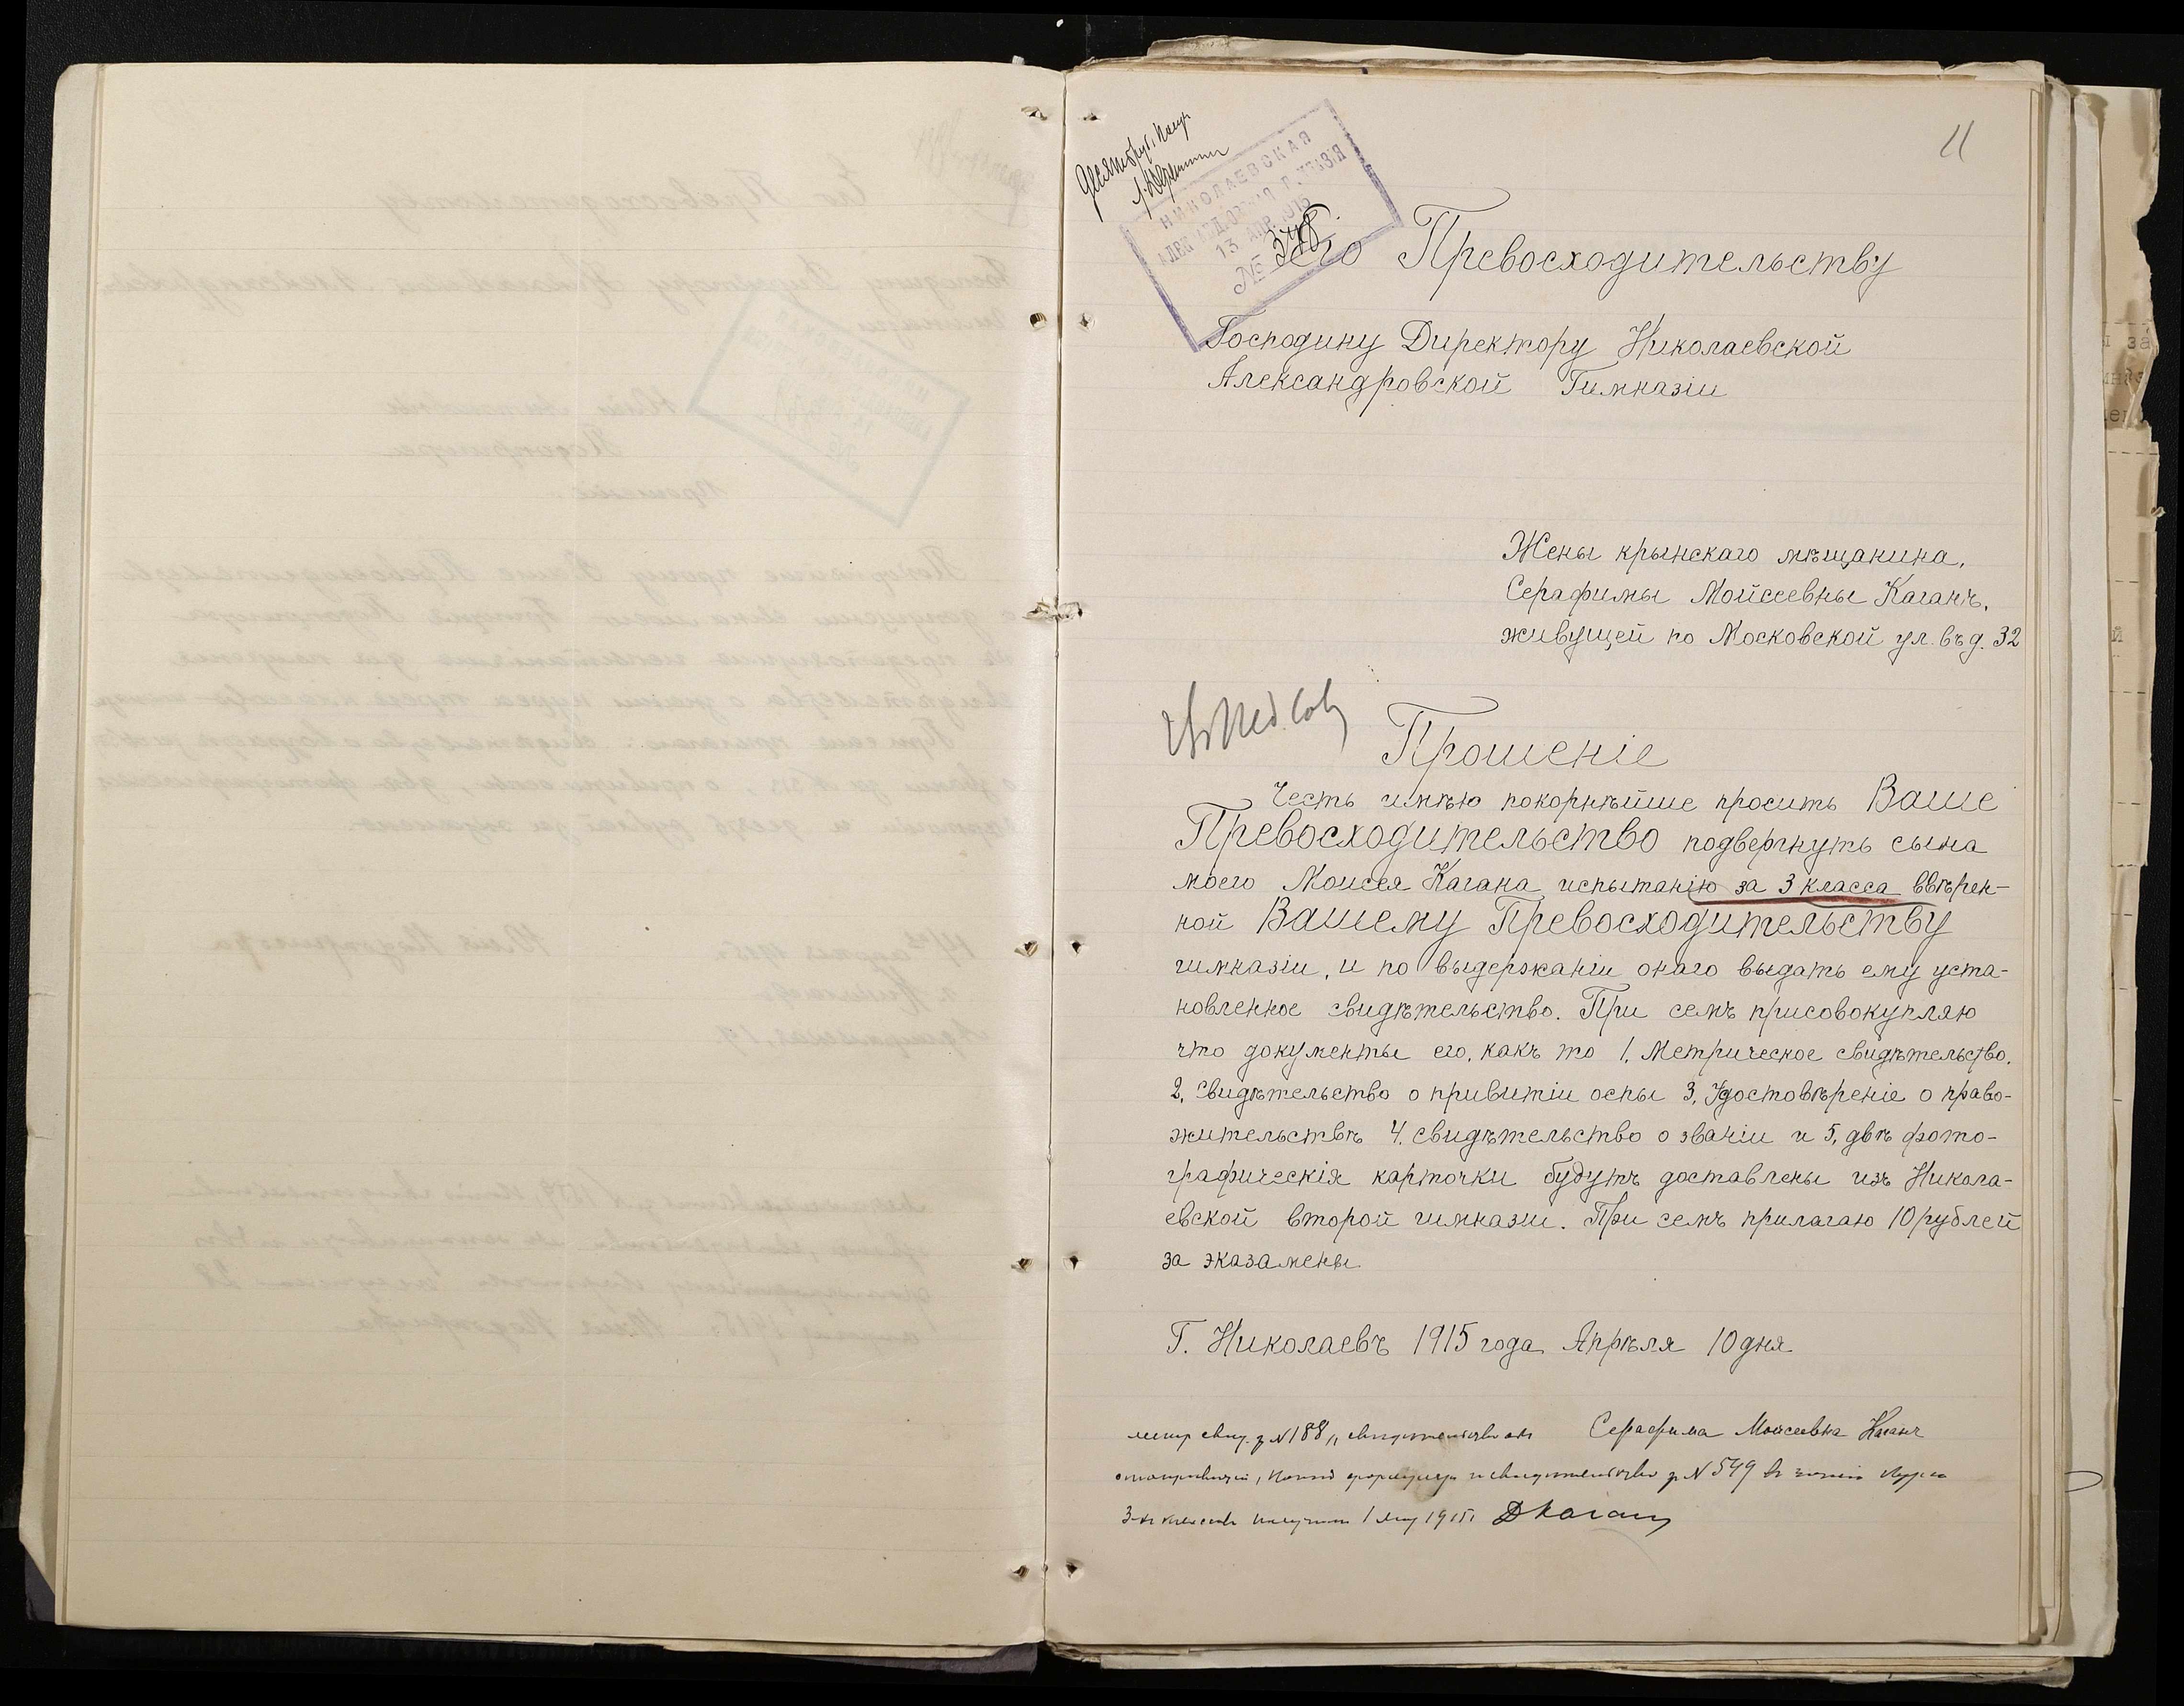 11
Десять руб. получ.
НИКОЛАЕВСКАЯ
АЛЕКСАНДРОВСКАЯ ГИМНАЗІЯ
13 АПР. 1915
№ 348
Его Превосходительству
Господину Директору Николаевской
Александровской Гимназіи
Жены крынскаго мѣщанина,
Серафимы Мойсеевны Каганъ,
живущей по Московской ул. въ д. 32
Въ Пед. Сов.
Прошеніе
Честь имѣю покорнѣйше просить Ваше
Превосходительство подвергнуть сына
моего Моисея Кагана испытанію за 3 класса ввѣрен-
ной Вашему Превосходительству
гимназіи, и по выдержаніи онаго выдать ему уста-
новленное свидѣтельство. При семъ присовокупляю
что документы его, какъ то 1. Метрическое свидѣтельство,
2, Свидѣтельство о привитіи оспы 3, Удостовѣреніе о право-
жительствѣ 4. свидѣтельство о званіи и 5, двѣ фото-
графическія карточки будутъ доставлены изъ Никола-
евской второй гимназіи. При семъ прилагаю 10 рублей
за экзамены
Г. Николаевъ 1915 года Апрѣля 10 дня
Серафима Моисеевна Каганъ
метр. свид. з № 188, свидетельство
и свидетельство з № 549
3-хъ классовъ получилъ 1 1915 г. ДКаган